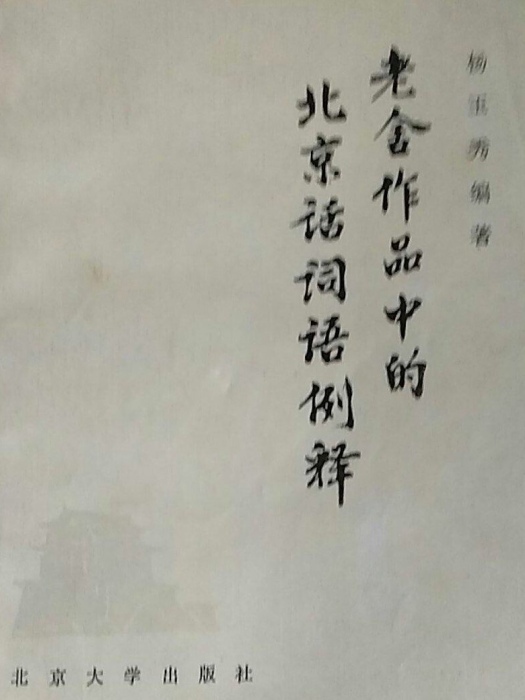 杨玉秀编著
老舍作品中的
北京话词语例释
北京大学出版社